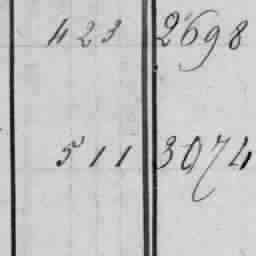 423 2698
511 3074